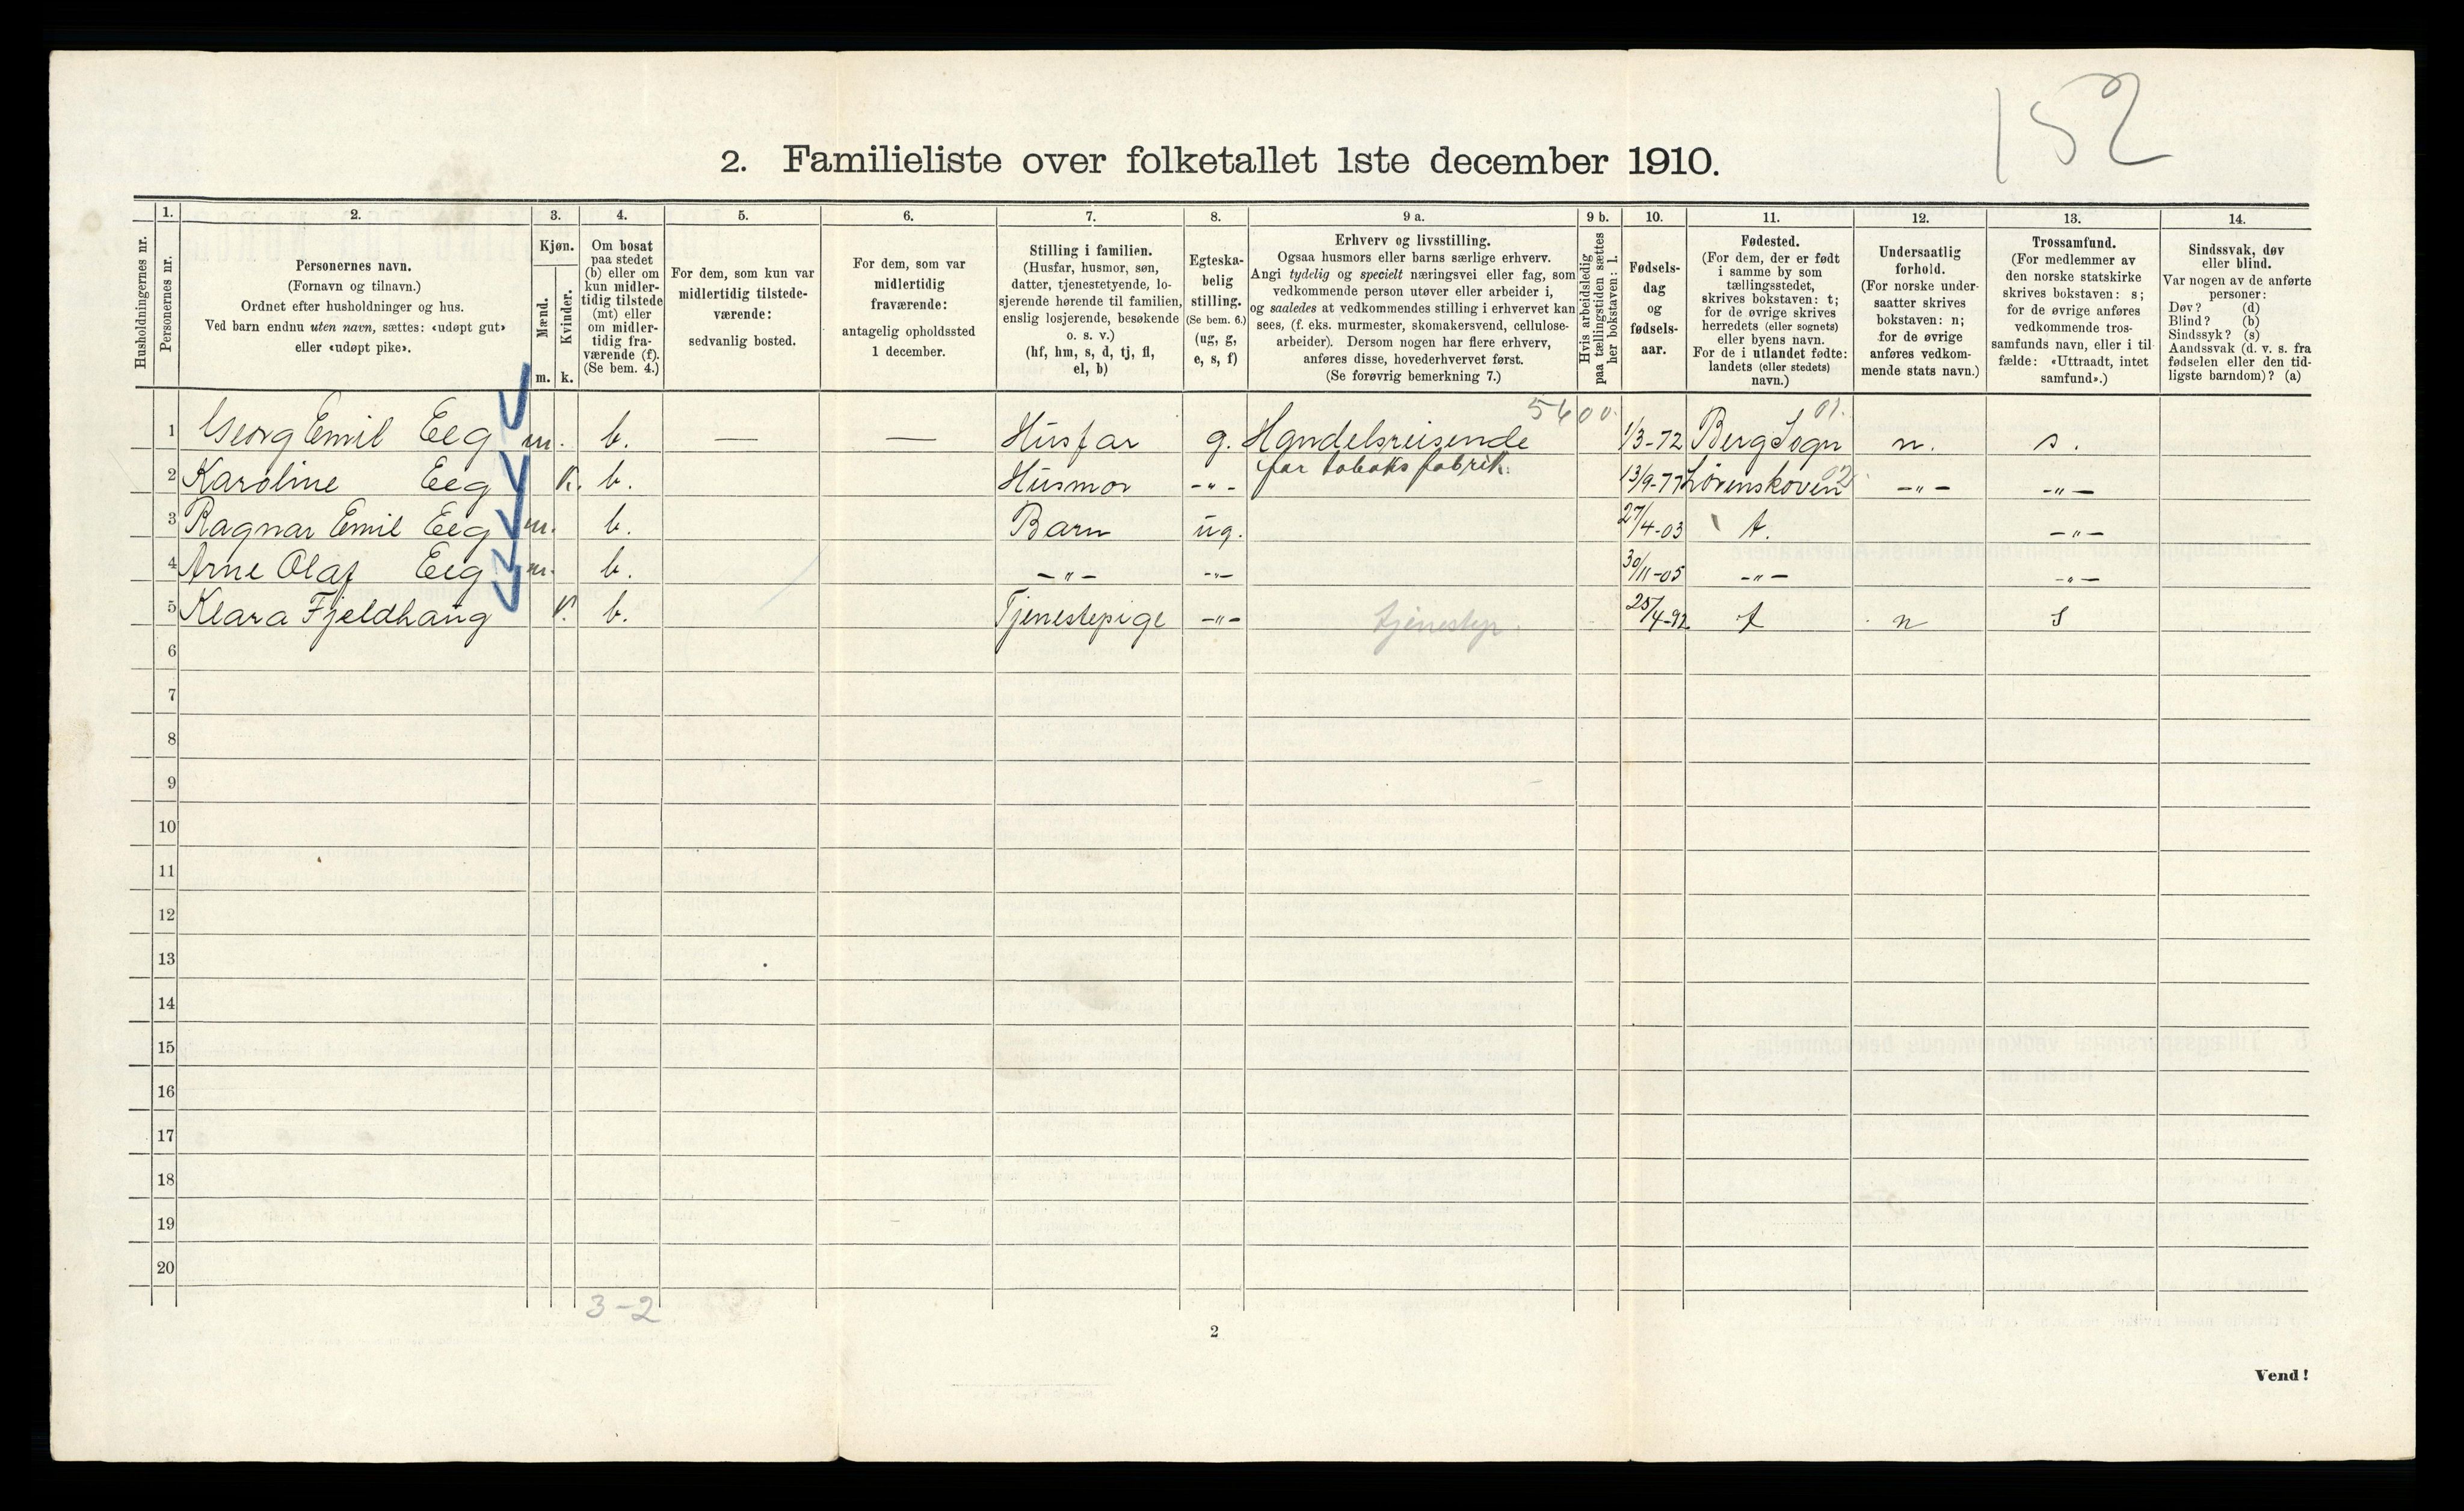 152
2. Familieliste over folketallet 1ste december 1910.
Husholdningernes nr.
1.
Personernes nr.
2.
Personernes navn.
(Fornavn og tilnavn.)
Ordnet efter husholdninger og hus.
Ved barn endnu uten navn, sættes: «udøpt gut»
eller «udøpt pike».
3.
Kjøn.
Mænd.
Kvinder.
m.
k.
4.
Om bosat
paa stedet
(b) eller om
kun midler-
tidig tilstede
(mt) eller
om midler-
tidig fra-
værende (f).
(Se bem. 4.)
5.
For dem, som kun var
midlertidig tilstede-
værende:
sedvanlig bosted.
6.
For dem, som var
midlertidig
fraværende:
antagelig opholdssted
1 december.
7.
Stilling i familien.
(Husfar, husmor, søn,
datter, tjenestetyende, lo-
sjerende hørende til familien,
enslig losjerende, besøkende
o. s. v.)
(hf, hm, s, d, tj, fl,
el, b)
8.
Egteska-
belig
stilling.
(Se bem. 6.)
(ug, g,
e, s, f)
9 a.
Erhverv og livsstilling.
Ogsaa husmors eller barns særlige erhverv.
Angi tydelig og specielt næringsvei eller fag, som
vedkommende person utøver eller arbeider i,
og saaledes at vedkommendes stilling i erhvervet kan
sees, (f. eks. murmester, skomakersvend, cellulose-
arbeider). Dersom nogen har flere erhverv,
anføres disse, hovederhvervet først.
(Se forøvrig bemerkning 7.)
9 b.
Hvis arbeidsledig
paa tællingstiden sættes
her bokstaven: l.
10.
Fødsels-
dag
og
fødsels-
aar.
11.
Fødested.
(For dem, der er født
i samme by som
tællingsstedet,
skrives bokstaven: t;
for de øvrige skrives
herredets (eller sognets)
eller byens navn.
For de i utlandet fødte:
landets (eller stedets)
navn.)
12.
Undersaatlig
forhold.
(For norske under-
saatter skrives
bokstaven: n;
for de øvrige
anføres vedkom-
mende stats navn.)
13.
Trossamfund.
(For medlemmer av
den norske statskirke
skrives bokstaven: s;
for de øvrige anføres
vedkommende tros-
samfunds navn, eller i til-
fælde: «Uttraadt, intet
samfund».)
14.
Sindssvak, døv
eller blind.
Var nogen av de anførte
personer:
Døv? (d)
Blind? (b)
Sindssyk? (s)
Aandssvak (d. v. s. fra
fødselen eller den tid-
ligste barndom)? (a)
5600. 01.
1 Georg Emil Eeg m. b. — — Husfar g. Handelsreisende 1/3-72 Berg Sogn n. s.
for tobaksfabrik.
2 Karoline Eeg K. b. Husmor -"- 13/9-77 Lørenskoven 02 -"- -"-
3 Ragnar Emil Eeg m. b. Barn ug. 27/4-03 t. -"-
4 Arne Olaf Eeg m. b. -"- -"- 30/11-05 -"- -"-
5 Klara Fjeldhaug K. b. Tjenestepige -"- tjenestep. 25/4-92 t n s
6
7
8
9
10
11
12
13
14
15
16
17
18
19
20
3-2
2
Vend!